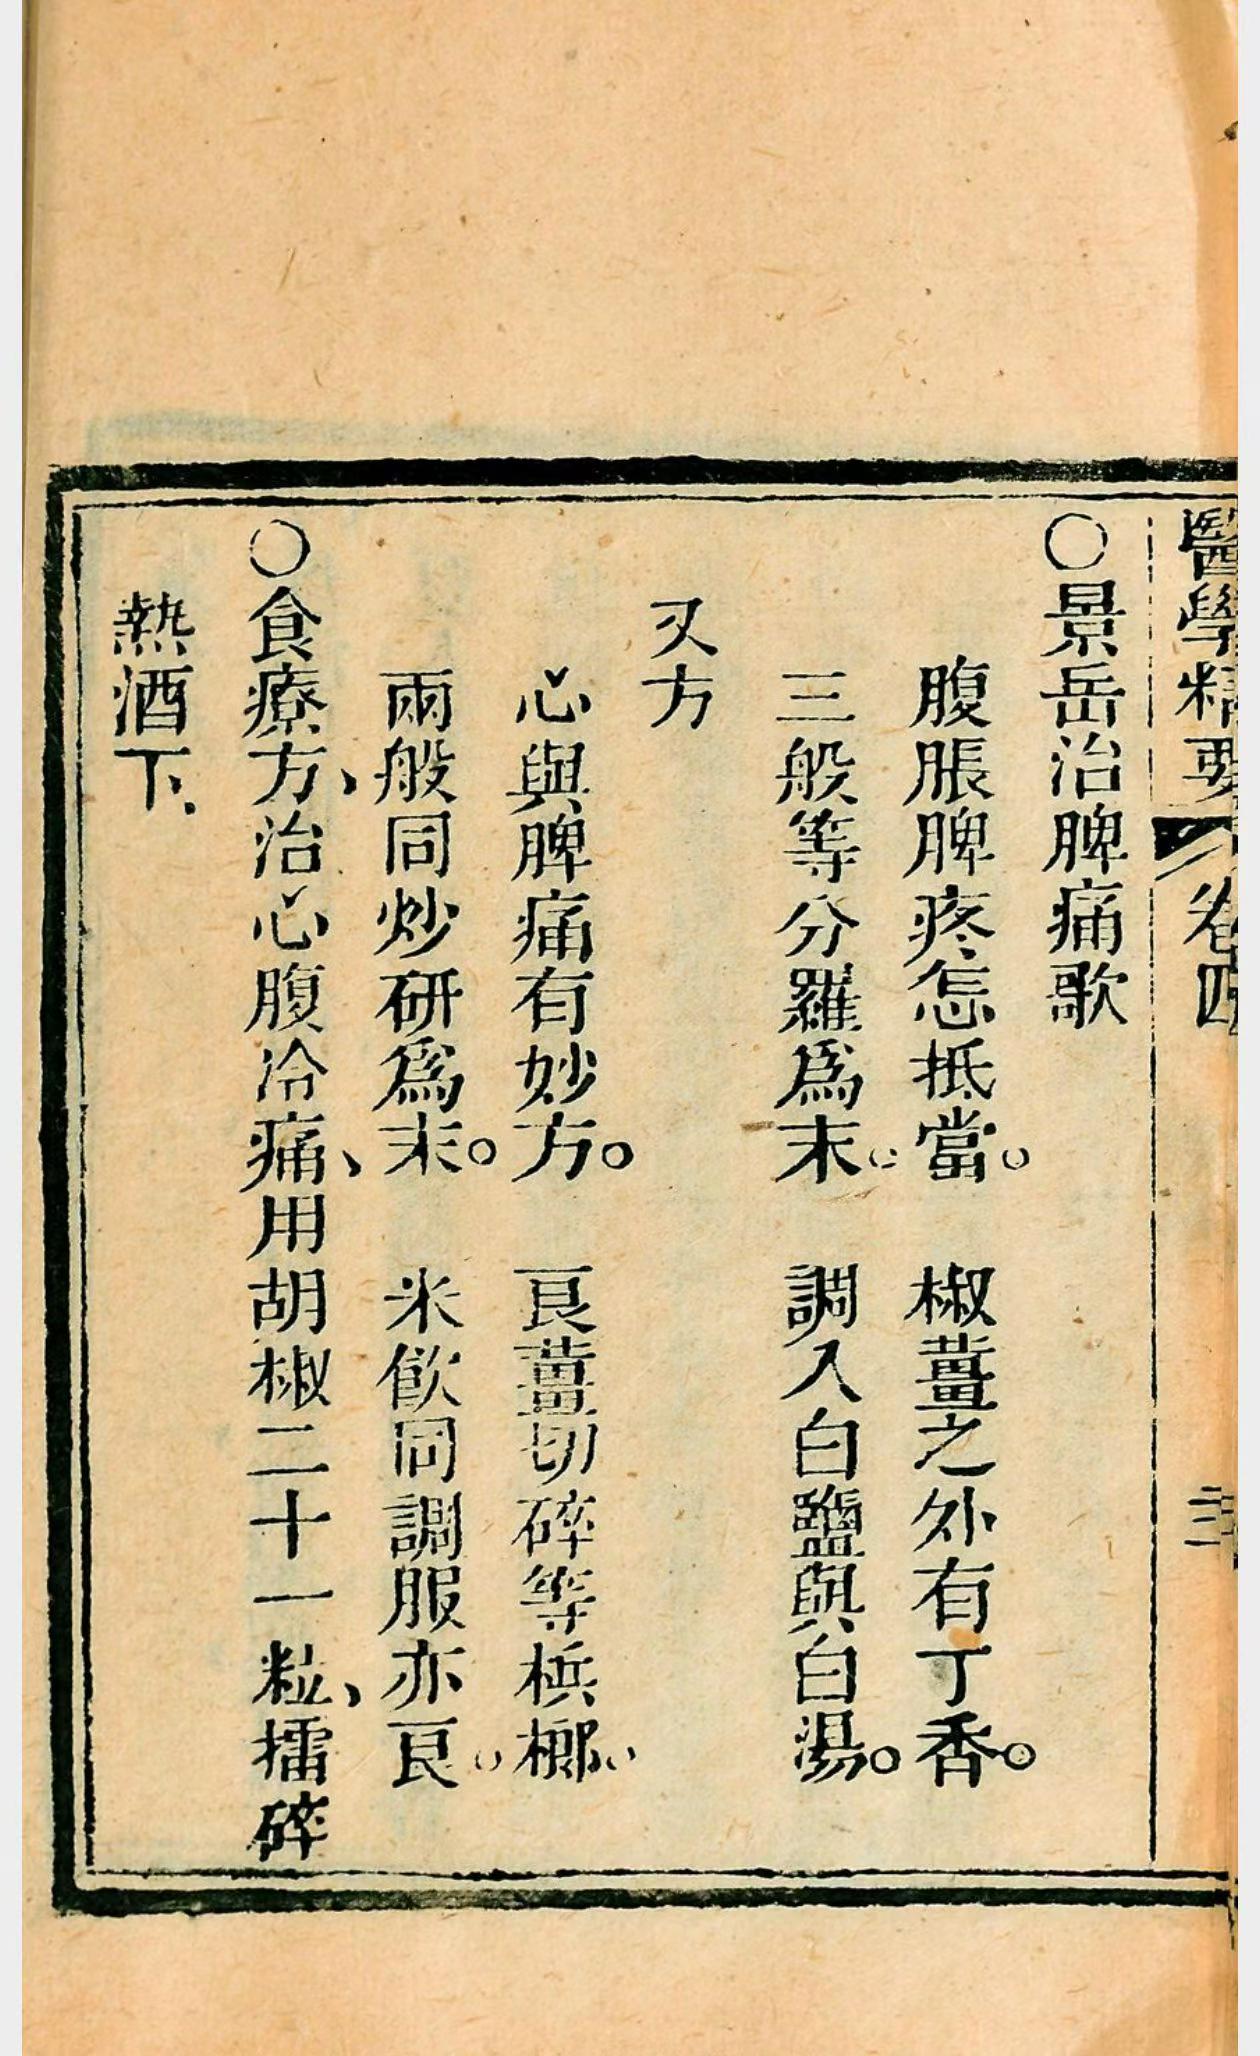 醫學精要 卷四 三
○景岳治脾痛歌
腹脹脾疼怎抵當。 椒薑之外有丁香。
三般等分羅爲末。 調入白鹽與白湯。
又方
心與脾痛有妙方。 良薑切碎等梹榔。
兩般同炒研爲末。 米飮同調服亦良。
○食療方、治心腹冷痛、用胡椒二十一粒、擂碎
熱酒下、